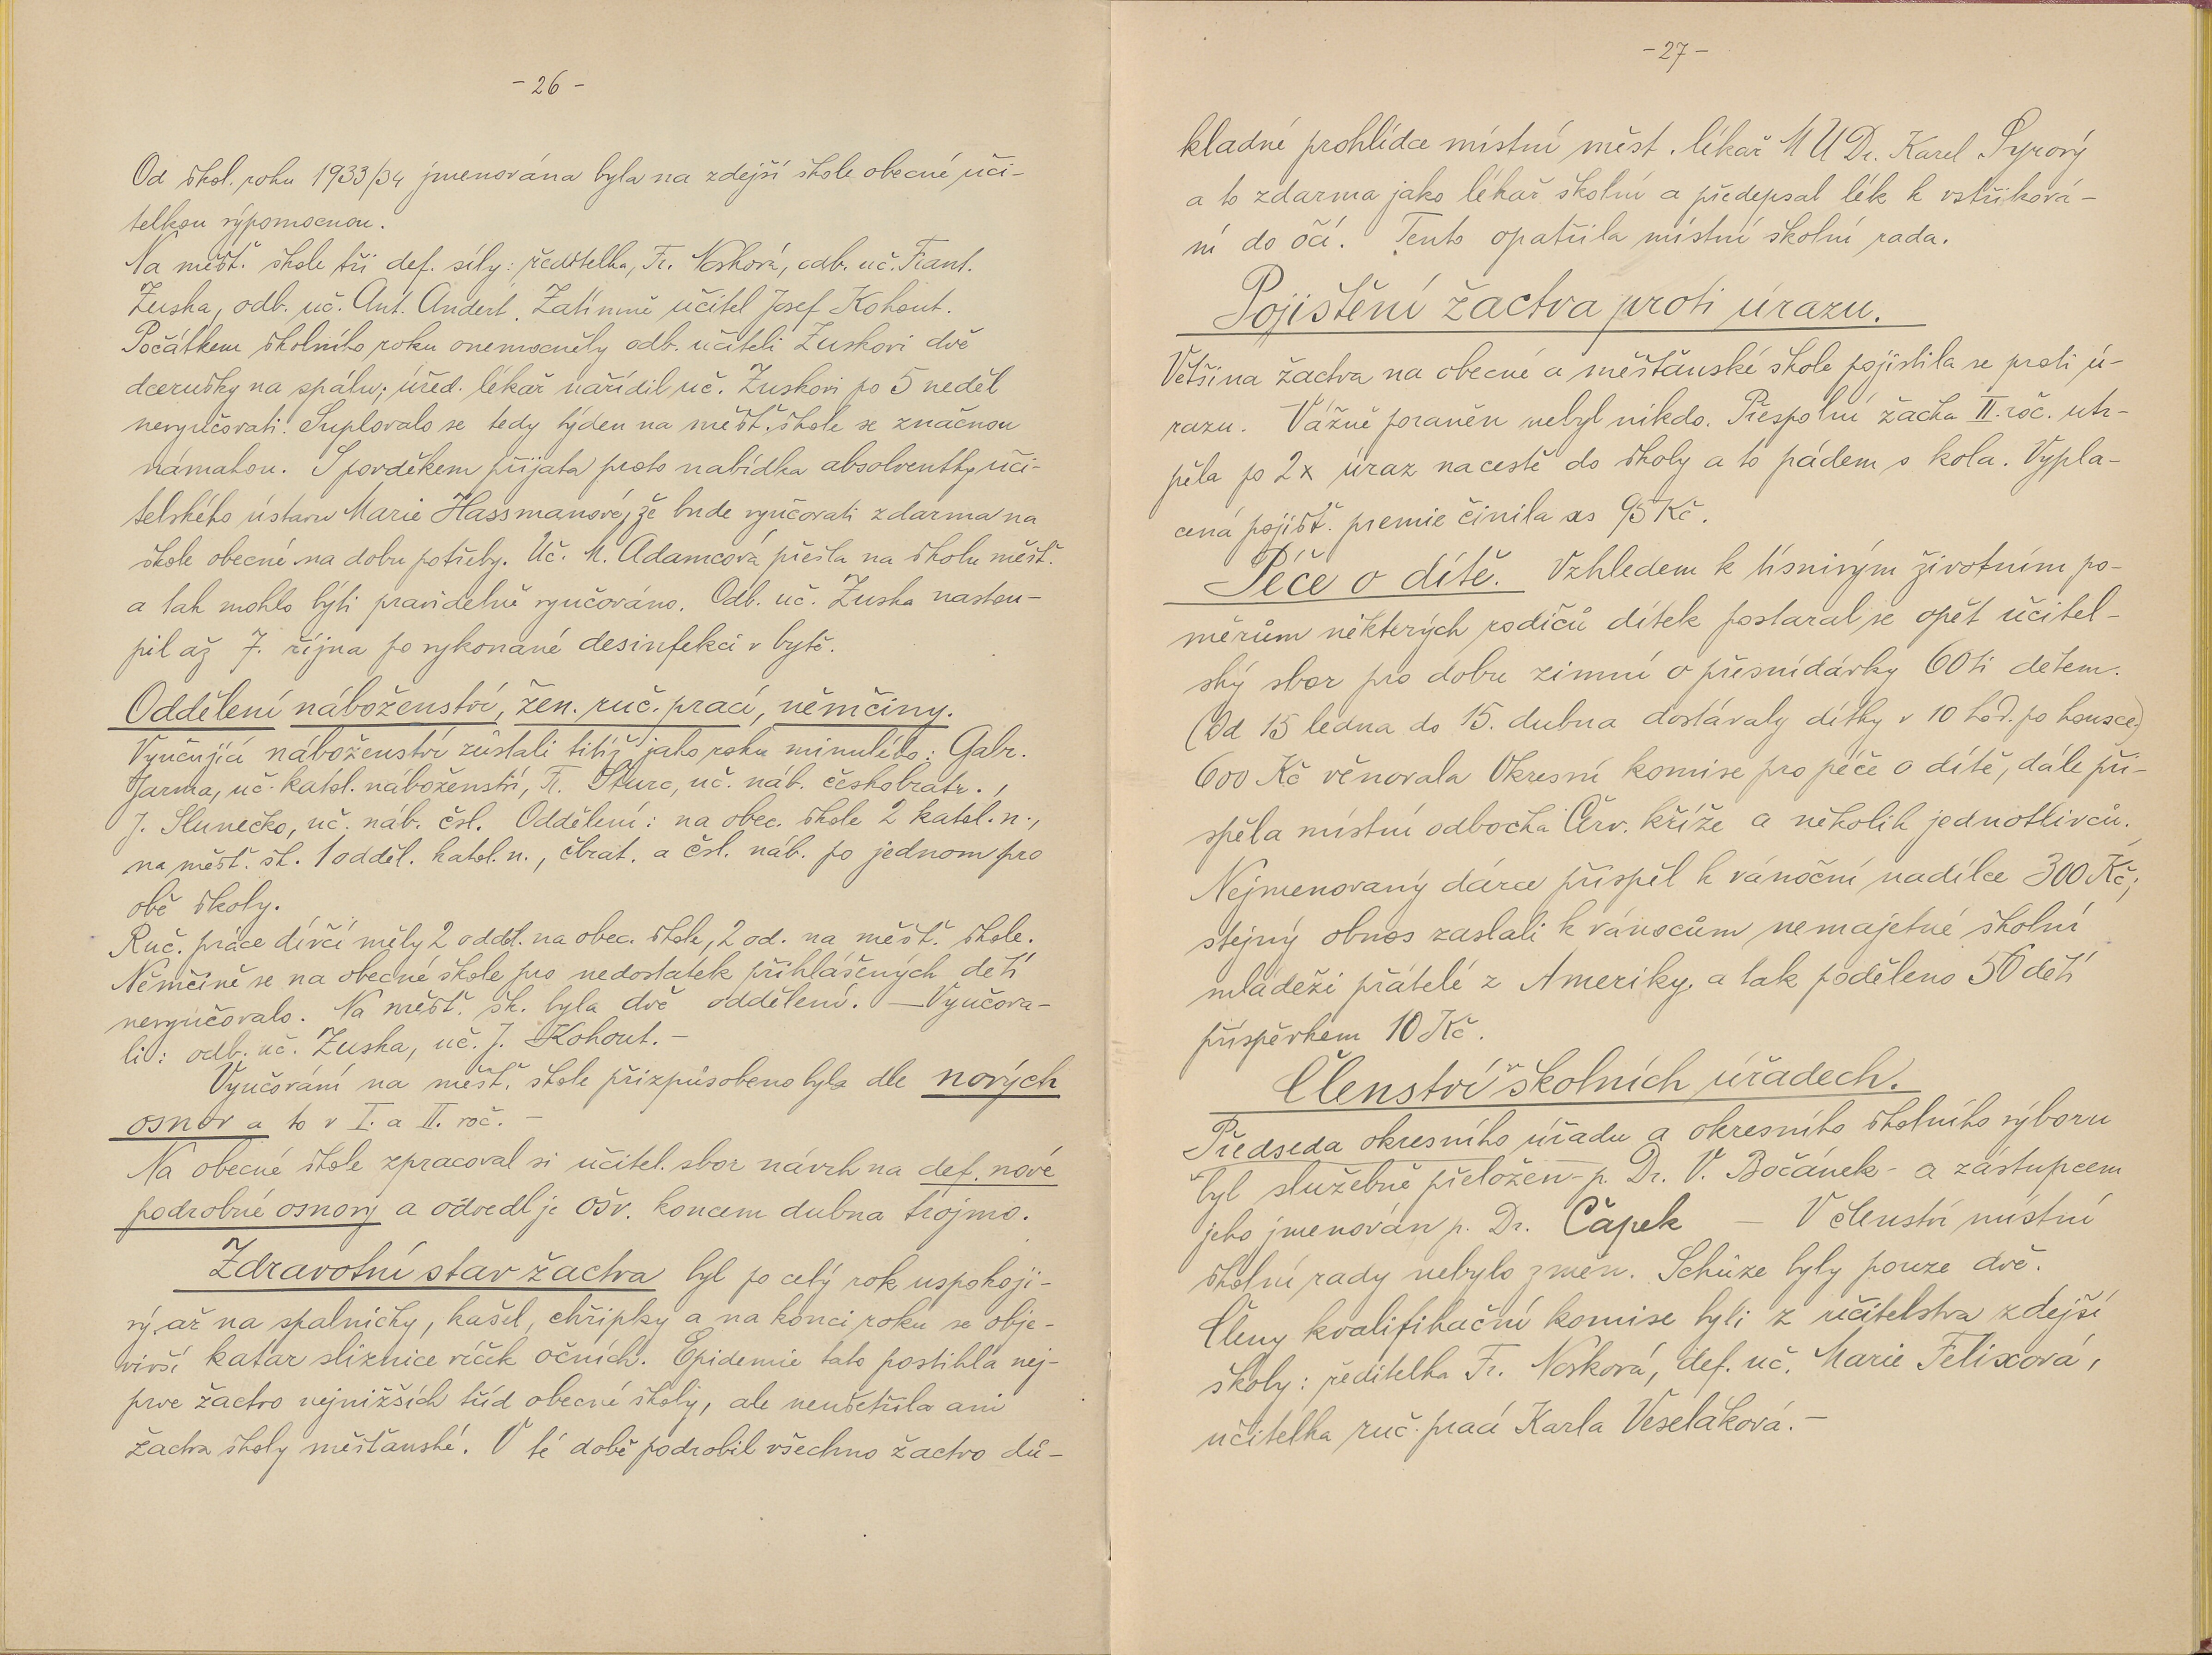 - 26 -
Od škol. roku 1933/34 jmenována byla na zdejší škole obecné uči-
telkou výpomocnou.
Na měšť. škole tři def. síly: ředitelka, Fr. Nosková, odb. uč. Frant.
Zuska, odb. uč. Ant. Andert. Zatímně učitel Josef Kohout.
Počátkem školního roku onemocněly odb. učiteli Zuskovi dvě
dcerušky na spálu; úřed. lékař nařídil uč. Zuskovi po 5 neděl
nevyučovati. Suplovalo se tedy týden na měšť. škole se značnou
námahou. S povděkem přijata proto nabídka absolventky uči-
telského ústavu Marie Hassmanové, že bude vyučovati zdarma na
škole obecné na dobu potřeby. Uč. M. Adamcová přešla na školu měšť.
a tak mohlo býti pravidelně vyučováno. Odb. uč. Zuska nastou-
pil až 7. října po vykonané desinfekci v bytě.
Oddělení náboženství, žen. ruč. prací, němčiny.
Vyučující náboženství zůstali titíž jako roku minulého: Gabr.
Jarma, uč. katol. náboženství, Fr. Šturc, uč. náb. českobratr.,
J. Slunečko, uč. náb. čsl. Oddělení: na obec. škole 2 katol. n.,
na měšť. šk. 1 odděl. katol. n., čbrat. a čsl. náb. po jednom pro
obě školy.
Ruč. práce dívčí měly 2 odděl. na obec. škole, 2 od. na měšť. škole.
Němčině se na obecné škole pro nedostatek přihlášených dětí
nevyučovalo. Na měšť. šk. byla dvě oddělení. — Vyučova-
li: odb. uč. Zuska, uč. J. Kohout. -
Vyučování na měšť. škole přizpůsobeno bylo dle nových
osnov a to v I. a II. roč. -
Na obecné škole zpracoval si učitel. sbor návrh na def. nové
podrobné osnovy a odvedl je ošv. koncem dubna trojmo.
Zdravotní stav žactva byl po celý rok uspokoji-
vý až na spalničky, kašel, chřipky a na konci roku se obje-
vivší katar sliznice víček očních. Epidemie tato postihla nej-
prve žactvo nejnižších tříd obecné školy, ale neušetřila ani
žactva školy měšťanské. V té době podrobil všechno žactvo dů-
- 27 -
kladné prohlídce místní měst. lékař MUDr. Karel Syrový
a to zdarma jako lékař školní a předepsal lék k vstřiková-
ní do očí. Tento opatřila místní školní rada.
Pojištění žactva proti úrazu.
Většina žactva na obecné a měšťanské škole pojistila se proti ú-
razu. Vážně poraněn nebyl nikdo. Přespolní žačka II. roč. utr-
pěla po 2x úraz na cestě do školy a to pádem s kola. Vypla-
cená pojišť. premie činila as 95 Kč.
Péče o dítě. Vzhledem k tísnivým životním po-
měrům některých rodičů dítek postaral se opět učitel-
ský sbor pro dobu zimní o přesnídávky 60ti dětem.
(Od 15 ledna do 15. dubna dostávaly dítky v 10 hod. po housce)
600 Kč věnovala Okresní komise pro péči o dítě, dále při-
spěla místní odbočka Červ. kříže a několik jednotlivců.
Nejmenovaný dárce přispěl k vánoční nadílce 300 Kč;
stejný obnos zaslali k vánocům nemajetné školní
mládeži přátelé z Ameriky, a tak poděleno 50 dětí
příspěvkem 10 Kč.
Členství v školních úřadech.
Předseda okresního úřadu a okresního školního výboru
byl služebně přeložen - p. Dr. V. Bočánek - a zástupcem
jeho jmenován p. Dr. Čapek — V členství místní
školní rady nebylo změn. Schůze byly pouze dvě.
Členy kvalifikační komise byli z učitelstva zdejší
školy: ředitelka Fr. Nosková, def. uč. Marie Felixová,
učitelka ruč. prací Karla Veseláková. -